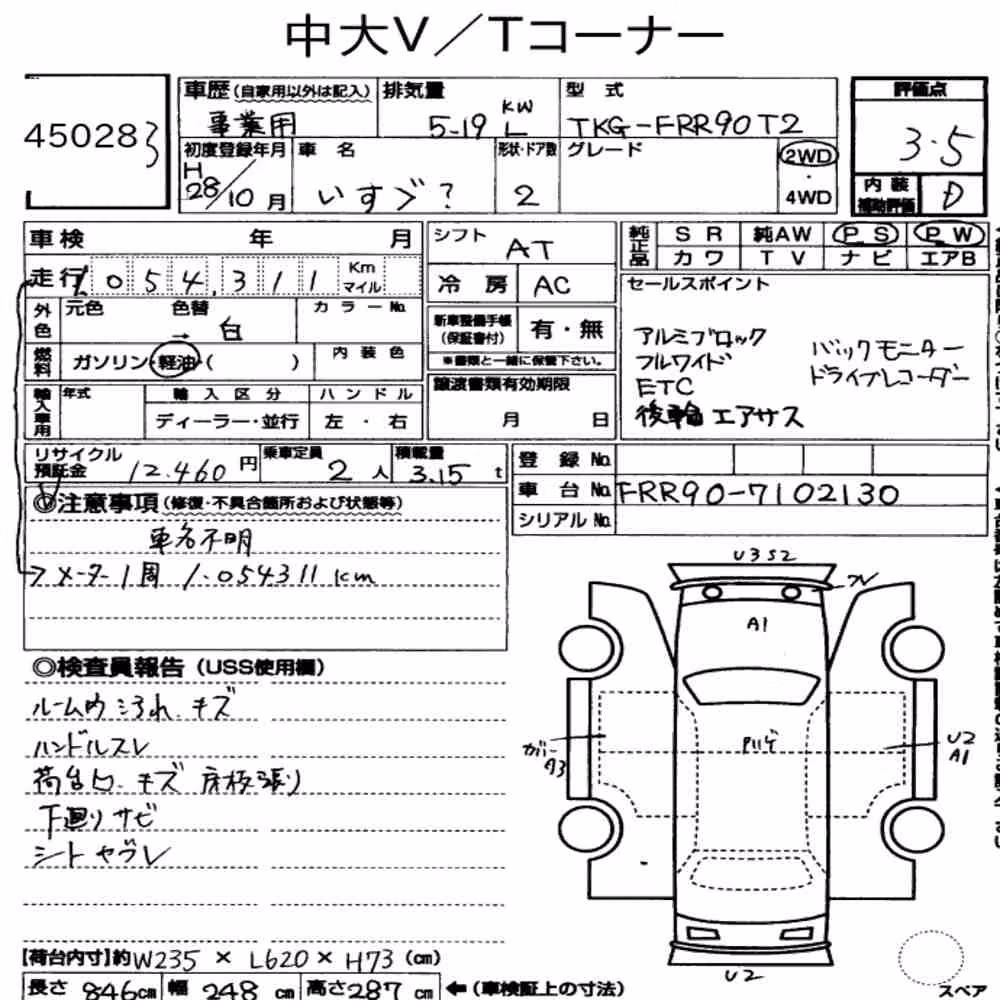 中大V／Tコーナー
45028 3
車歴（自家用以外は記入）
事業用
排気量
5.19 KW L
型式
TKG-FRR90T2
評価点
3.5
初度登録年月
H
28/10月
車名
いすゞ?
形状・ドア数
2
グレード
2WD
・
4WD
内装
補助評価
D
車検 年 月
走行 1,054,311 Km マイル
外色
元色 色替
→ 白
カラーNo.
燃料
ガソリン・軽油・（ ）
内装色
輸入車用
年式
輸入区分
ディーラー・並行
ハンドル
左・右
シフト
AT
冷房
AC
新車整備手帳
（保証書付）
有・無
※書類と一緒に保管下さい。
譲渡書類有効期限
月 日
純正品
SR 純AW PS PW
カワ TV ナビ エアB
セールスポイント
アルミブロック
フルワイド
ETC
後輪エアサス
バックモニター
ドライブレコーダー
リサイクル
預託金
12.460円
乗車定員
2人
積載量
3.15 t
登録No.
車台No. FRR90-7102130
シリアルNo.
◎注意事項（修復・不具合箇所および状態等）
車名不明
→メーター1周 1.054311km
◎検査員報告（USS使用欄）
ルーム内 ヨゴれ、キズ
ハンドルスレ
荷台凹、キズ 床板張り
下廻りサビ
シートヤブレ
U3S2
A1
U2
A1
A3
U2
スペア
【荷台内寸】約W235×L620×H73（cm）
長さ 846cm 幅 248cm 高さ287cm ←（車検証上の寸法）